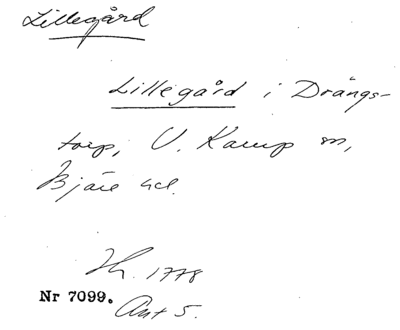 Lillegård
Lillegård i Drängs-
torp, V. Karup sn,
Bjäre hd.
Hh. 1778
Nr 7099.
Ant 5.